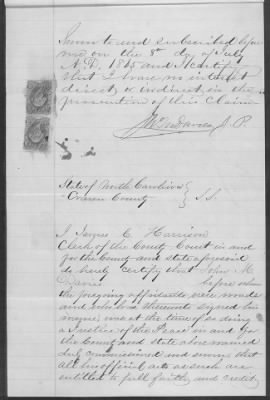 Sworn to and subscribed before
me on the 8th day of July
A.D. 1865 and I certify
that I have no interest
direct or indirect in the
prosecution of this Claim
J.P.
State of North Carolina
Craven County } S.S.
I James C. Harrison
Clerk of the County Court in and
for the County and state aforesaid
do hereby certify that John M
Davies before whom
the foregoing affidavits were made
and who has thereunto signed his
name, was at the time of so doing
a Justice of the Peace in and for
the County and state above named
duly commissioned and sworn, that
all his official acts as such are
entitled to full faith and credit